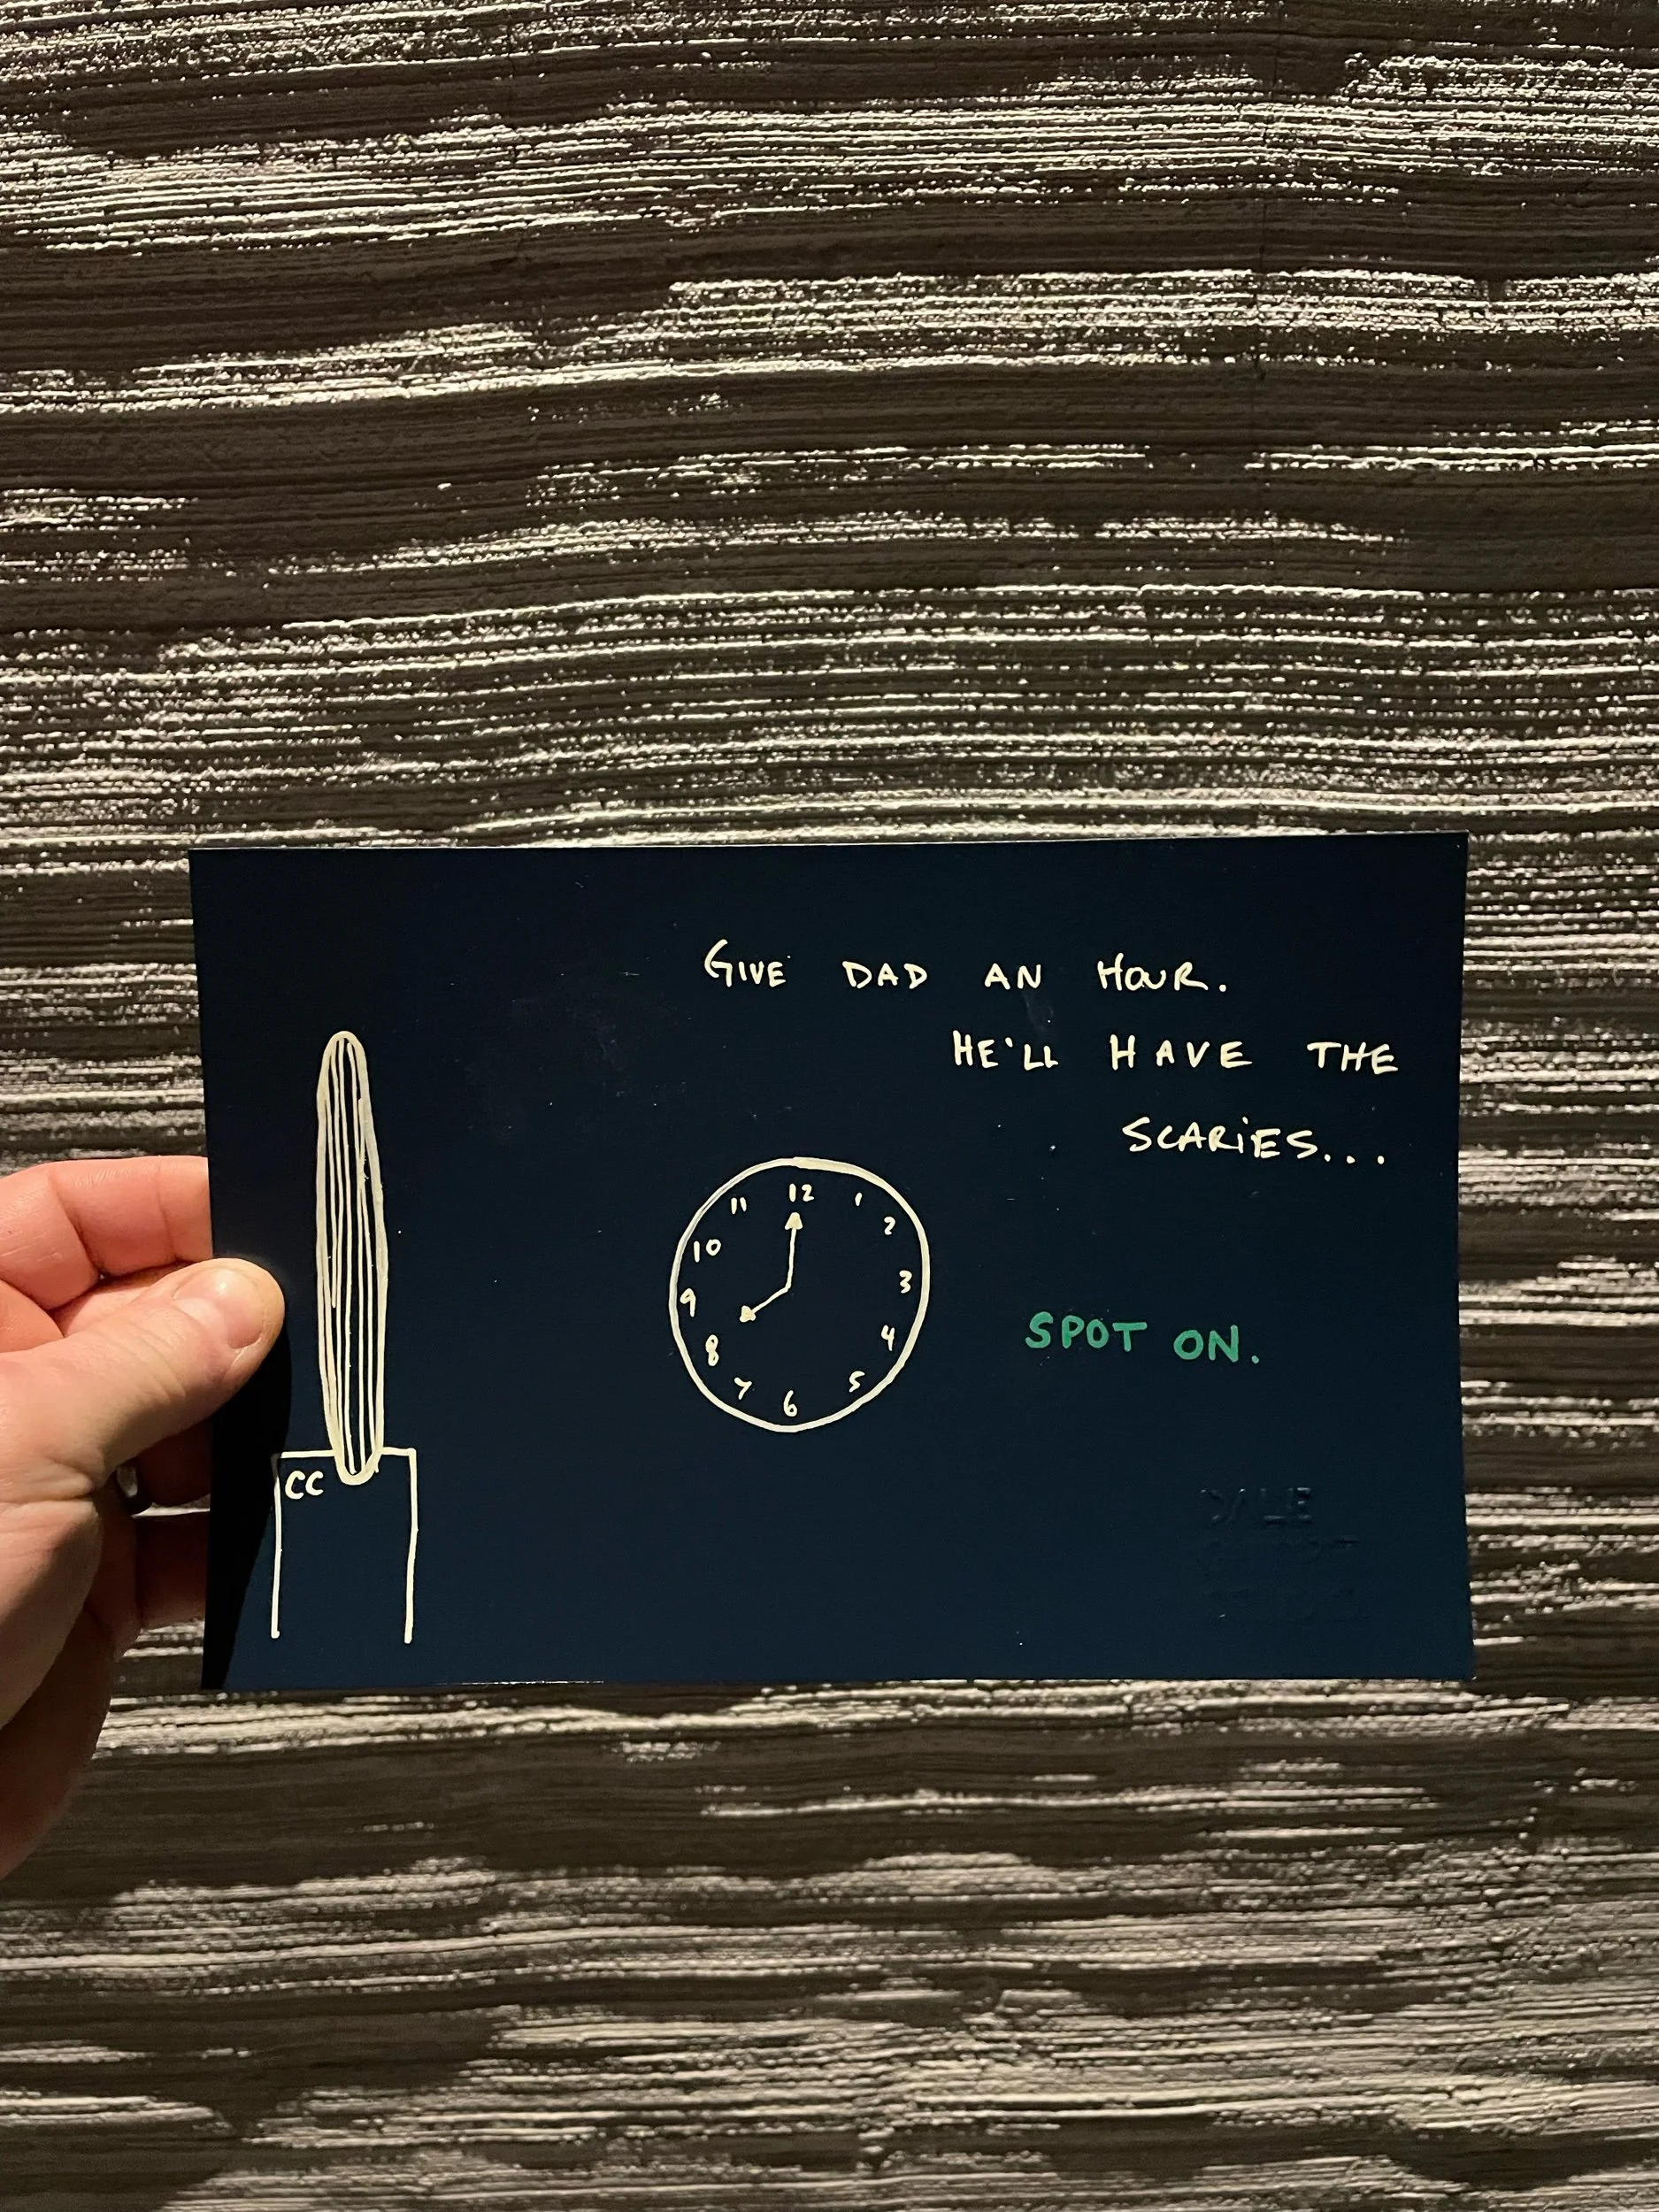 GIVE DAD AN HOUR.
HE'LL HAVE THE
SCARIES...
12
1
2
3
4
5
6
7
8
9
10
11
SPOT ON.
CC
DALE